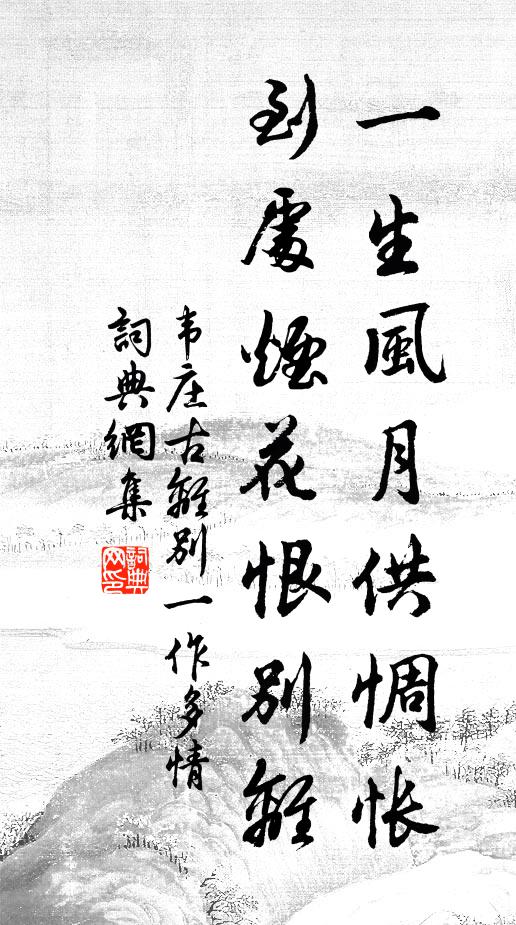 一生風月供惆悵
到處煙花恨別離
韦庄古離別一作多情
詞典網集
詞典网印